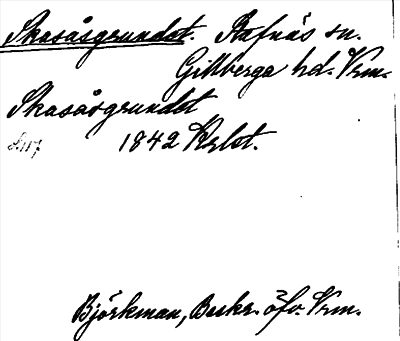 Skasåsgrundet. Stafnäs sn.
Gillberga hd. Vrm.
Skasåsgrundet
s. 117 1842 Krlst.
Björkman, Beskr. öfv. Vrm.